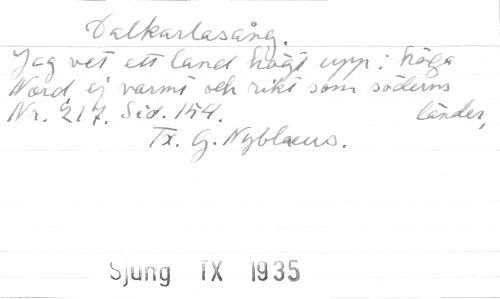 Dalkarlasång.
Jag vet ett land högt upp i höga
Nord ej varmt och rikt som söderns
länder,
Nr. 217. Sid. 154.
Tx. G. Nyblaeus.
Sjung IX 1935